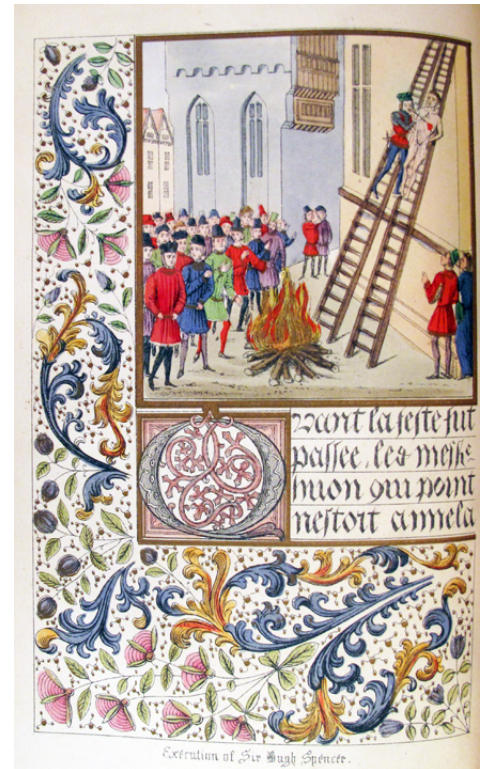 Quant la feste fut
passee. les
huon qui point
nestoit
Execution of Sir Hugh Spencer.